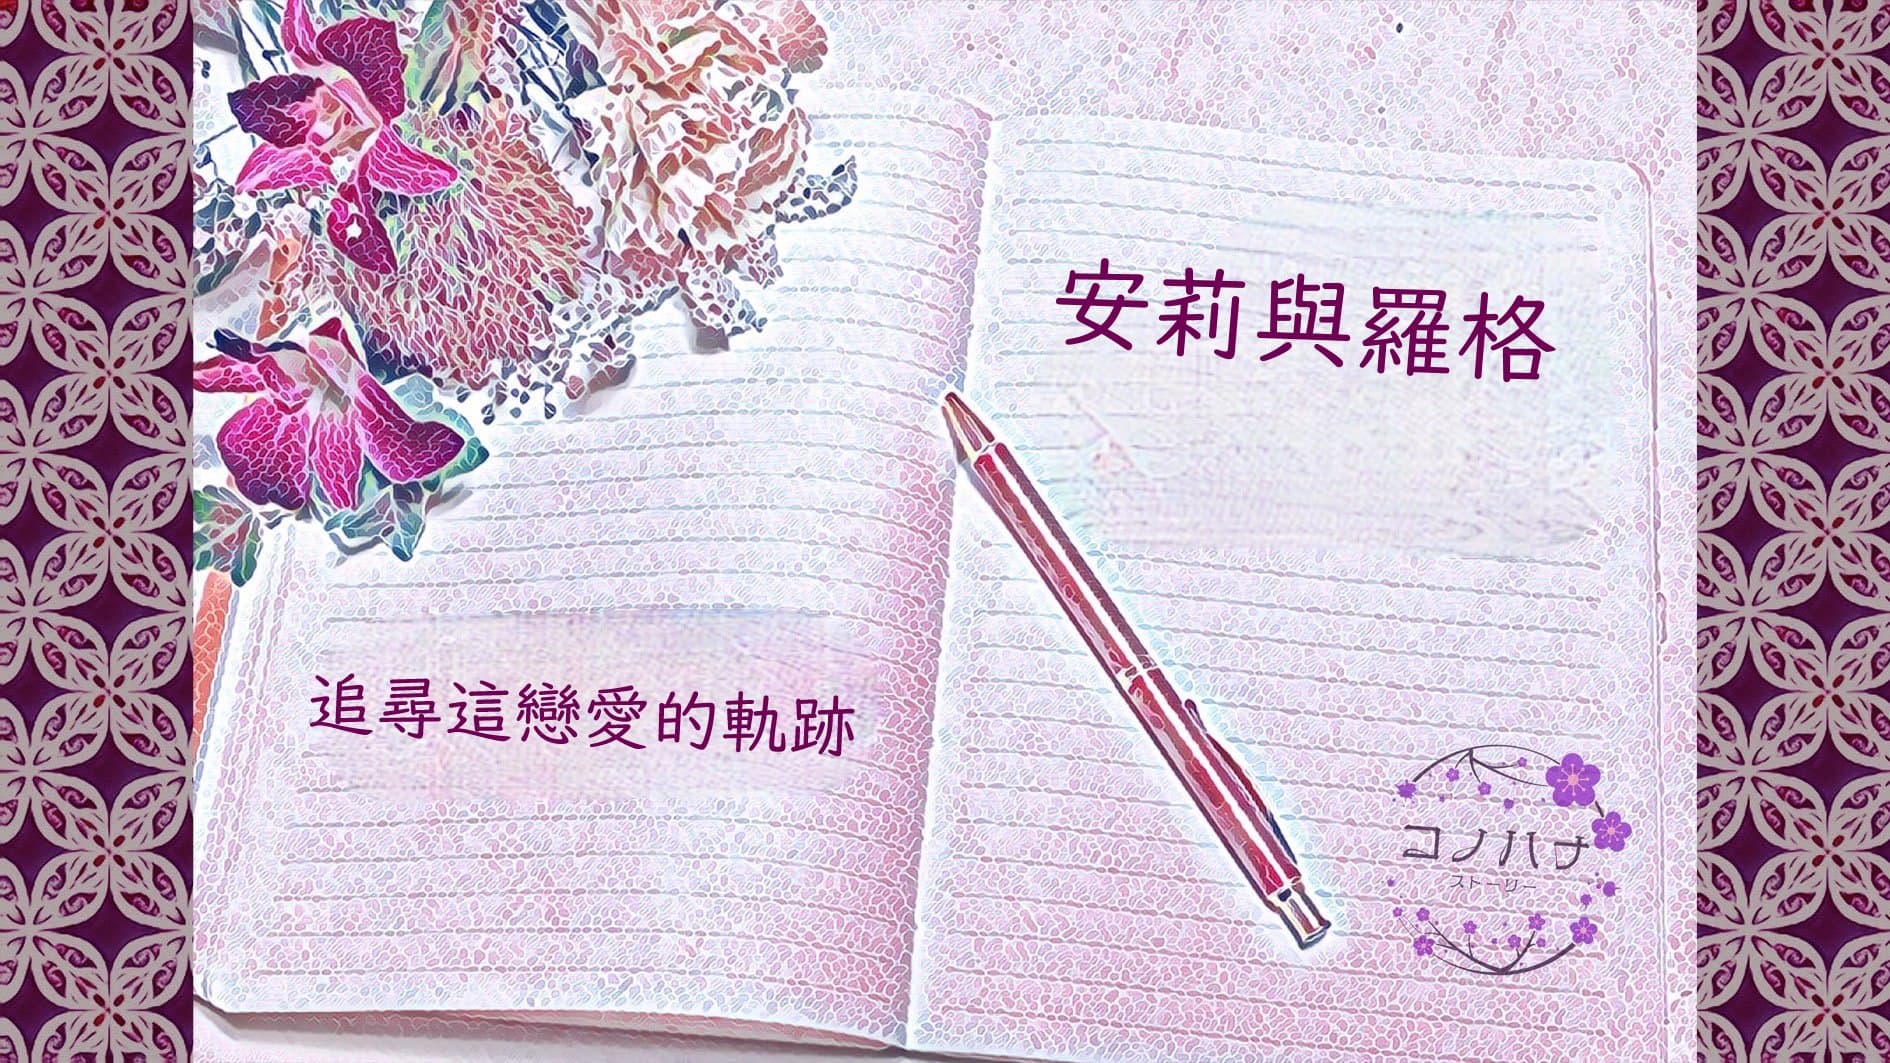 安莉與羅格
追尋這戀愛的軌跡
コノハナ
ストーリー